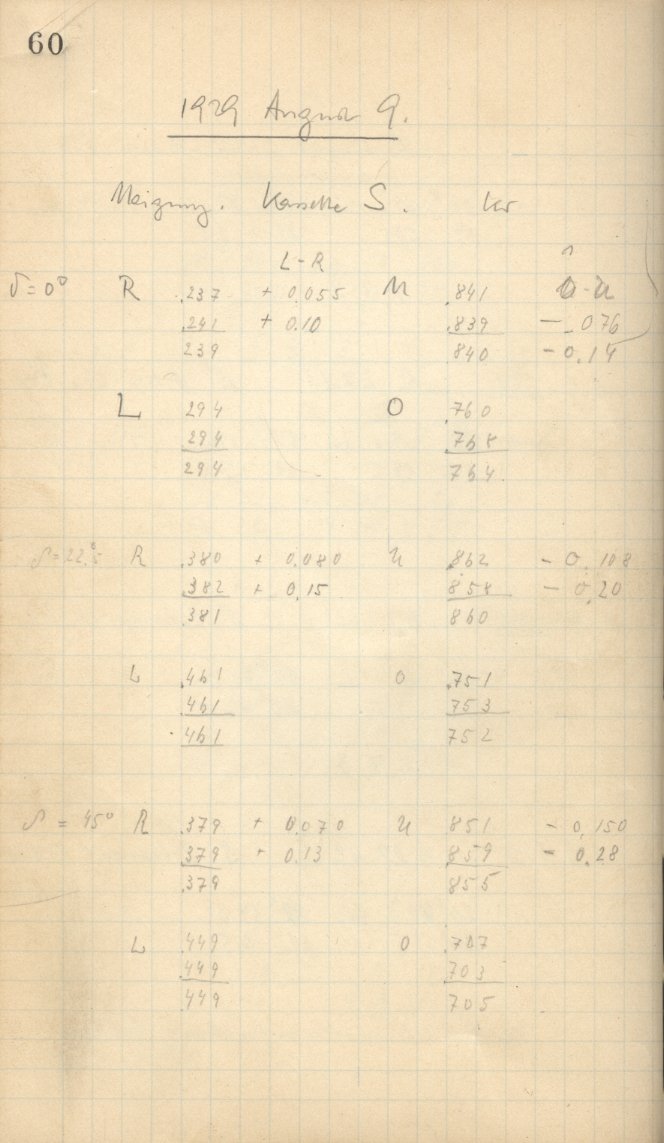 60
1929 August 9.
Neigung. Kassette S.
L-R
δ=0° R .237 + 0.055 U .841 O-U
.241 + 0.10 .839 - .076
239 840 - 0.14
L 294 O .760
294 768
294 764
δ=22.°5 R .380 + 0.080 U .862 - 0.108
.382 + 0.15 858 - 0.20
381 860
L .461 O .751
.461 753
461 752
δ = 45° R .379 + 0.070 U 851 - 0.150
.379 + 0.13 859 - 0.28
.379 855
L .449 O .707
.449 703
449 705